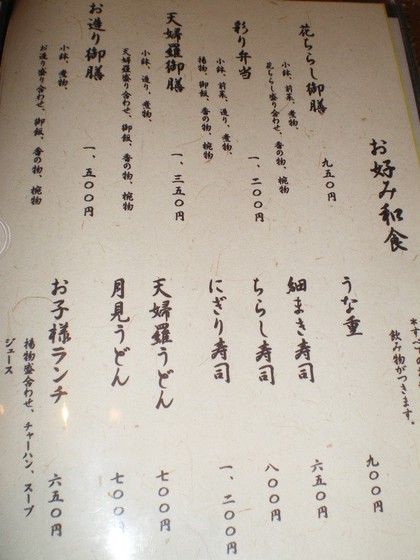 お好み和食
花ちらし御膳 九五〇円
小鉢、前菜、煮物、
花ちらし盛り合わせ、香の物、椀物
彩り弁当 一、二〇〇円
小鉢、前菜、造り、煮物、
揚物、御飯、香の物、椀物
天婦羅御膳 一、三五〇円
小鉢、造り、煮物、
天婦羅盛り合わせ、御飯、香の物、椀物
お造り御膳 一、五〇〇円
小鉢、煮物、
お造り盛り合わせ、御飯、香の物、椀物
飲み物がつきます。
うな重 九〇〇円
細まき寿司 六五〇円
ちらし寿司 八〇〇円
にぎり寿司 一、二〇〇円
天婦羅うどん 七〇〇円
月見うどん 七〇〇円
お子様ランチ 六五〇円
揚物盛合わせ、チャーハン、スープ
ジュース